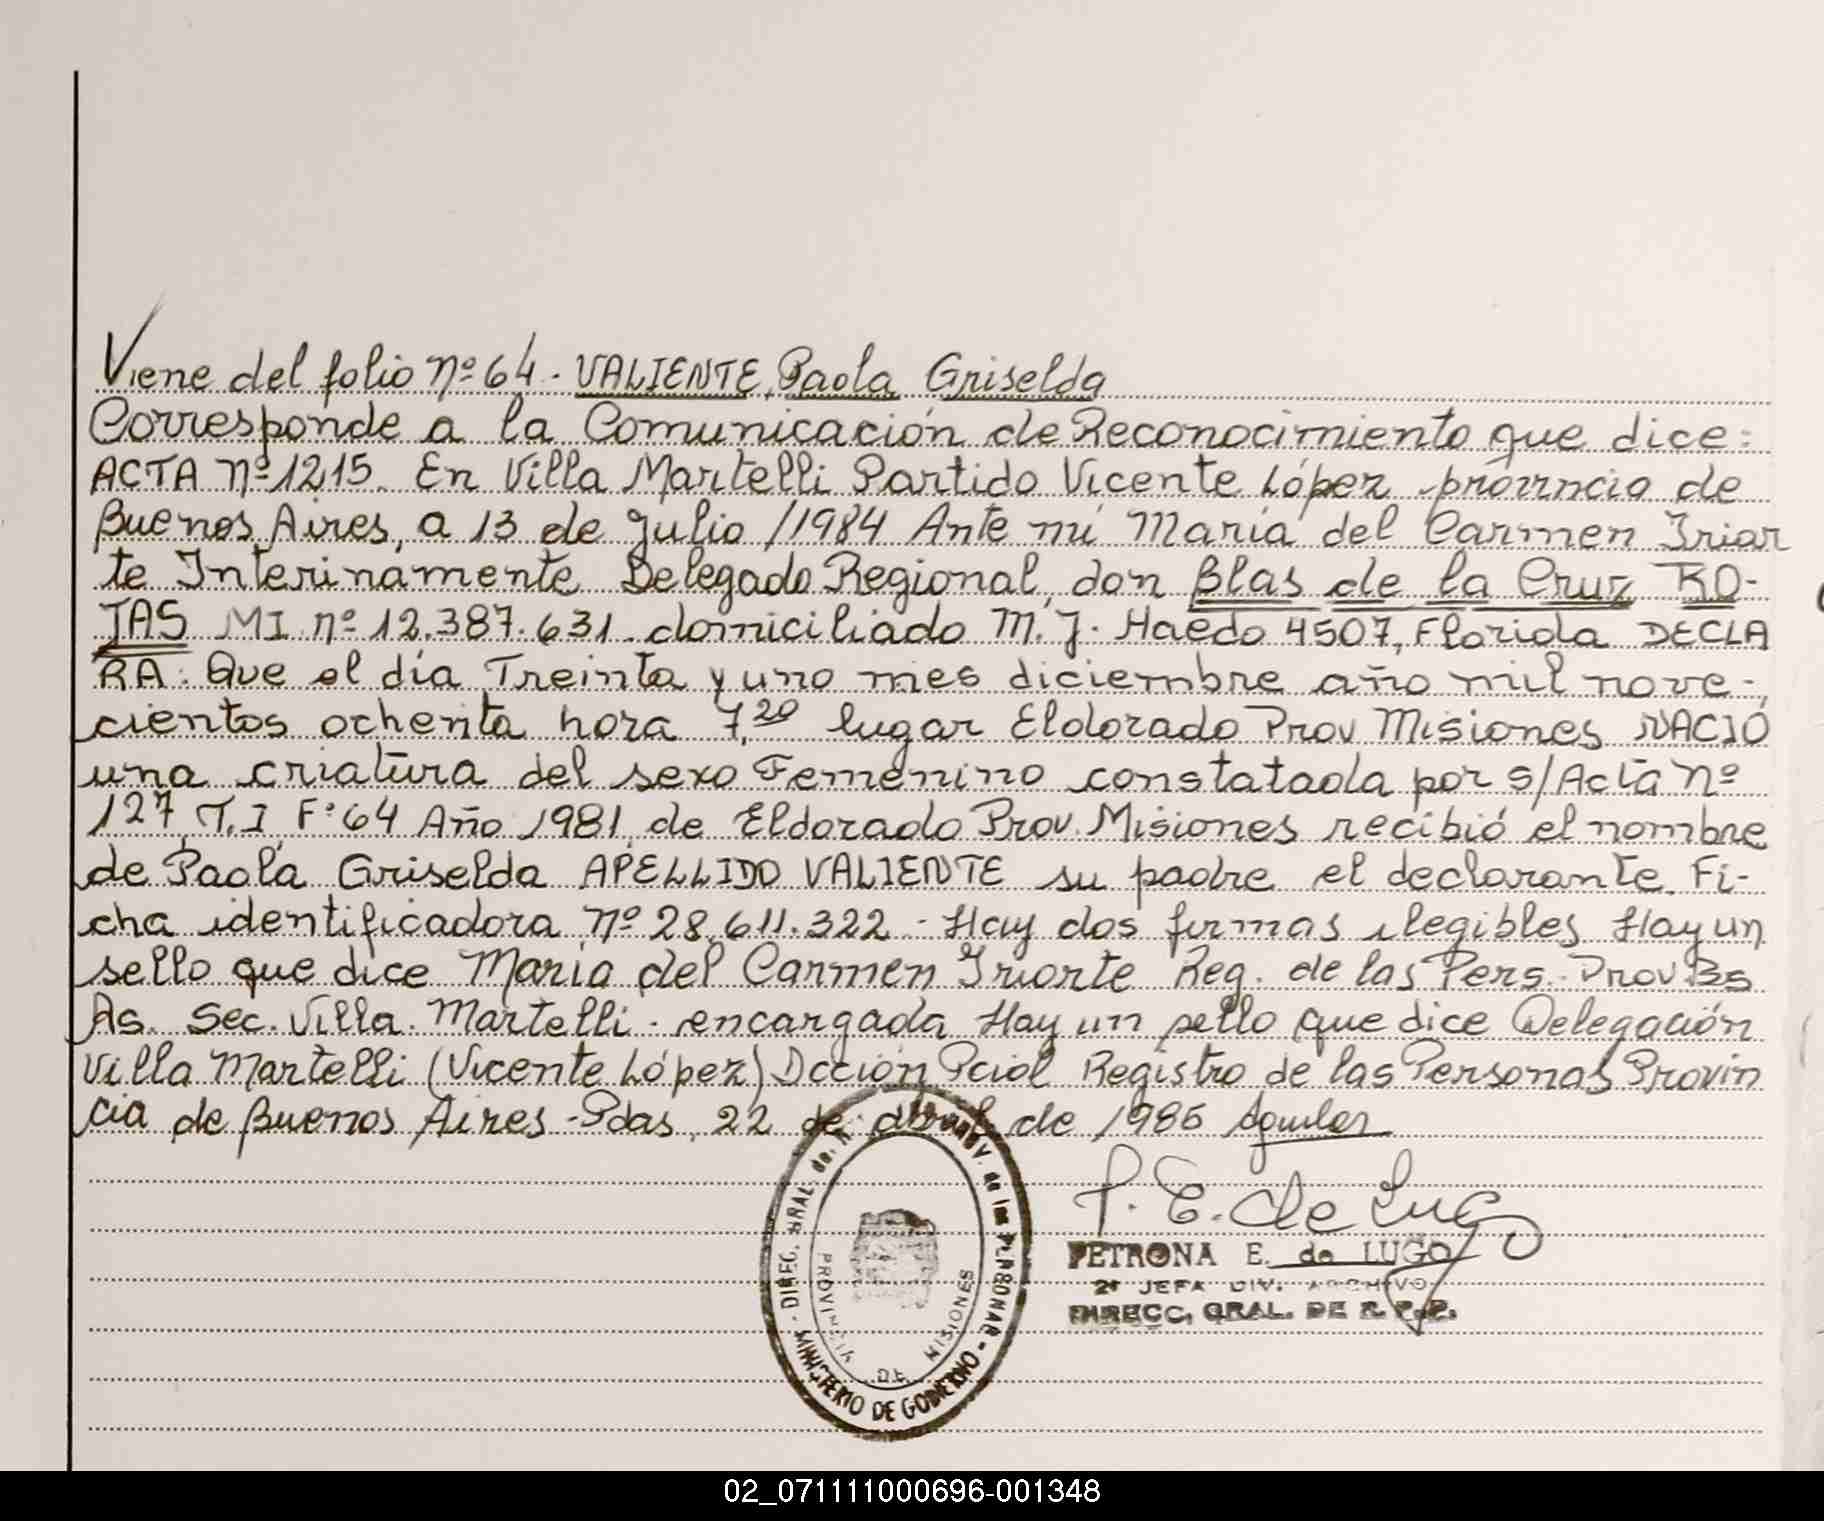 Viene del folio nº 64 - VALIENTE, Paola Griselda
Corresponde a la Comunicación de Reconocimiento que dice:
ACTA nº 1215. En Villa Martelli Partido Vicente López provincia de
Buenos Aires, a 13 de Julio /1984 Ante mí María del Carmen Iriar
te Interinamente Delegado Regional, don Blas de la Cruz RO-
JAS MI. nº 12.387.631. domiciliado M. J. Haedo 4507, Florida DECLA
RA: Que el día Treinta y uno mes diciembre año mil nove-
cientos ochenta hora 7,20 lugar Eldorado Prov Misiones NACIÓ
una criatura del sexo Femenino constatada por s/Acta nº
127 T.I Fº 64 Año 1981 de Eldorado Prov. Misiones recibió el nombre
de Paola Griselda APELLIDO VALIENTE su padre el declarante. Fi-
cha identificadora nº 28.611.322 - Hay dos firmas ilegibles Hay un
sello que dice María del Carmen Iriarte Reg. de las Pers. Prov. Bs
As. Sec. Villa Martelli. encargada Hay un sello que dice Delegación
Villa Martelli (Vicente López) Dcción Pcial Registro de las Personas Provin
cia de Buenos Aires - Pdas, 22 de abril de 1986 Aguilar
P. E. de Lugo
PETRONA E. de LUGO
2ª JEFA DIV. ARCHIVO
DIRECC. GRAL. DE R. P. P.
DIREC. GRAL. de las PERSONAS - MINISTERIO DE GOBIERNO -
PROVINCIA DE MISIONES
02_071111000696-001348